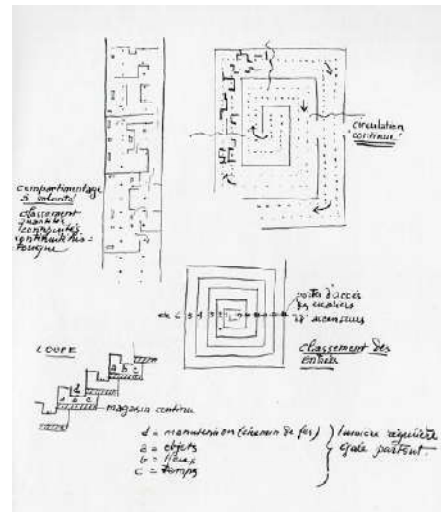 circulation
continue
compartimentage
à volonté
classement
quantités
continuité his-
torique
portes d'accès
des escaliers
et ascenseurs
etc 6 5 4 3 2 1
classement des
entités
COUPE
d
a b c
a b c
magasin continu
d = manutention (chemin de fer)
a = objets
b = lieux
c = temps
lumière régulière
égale partout.